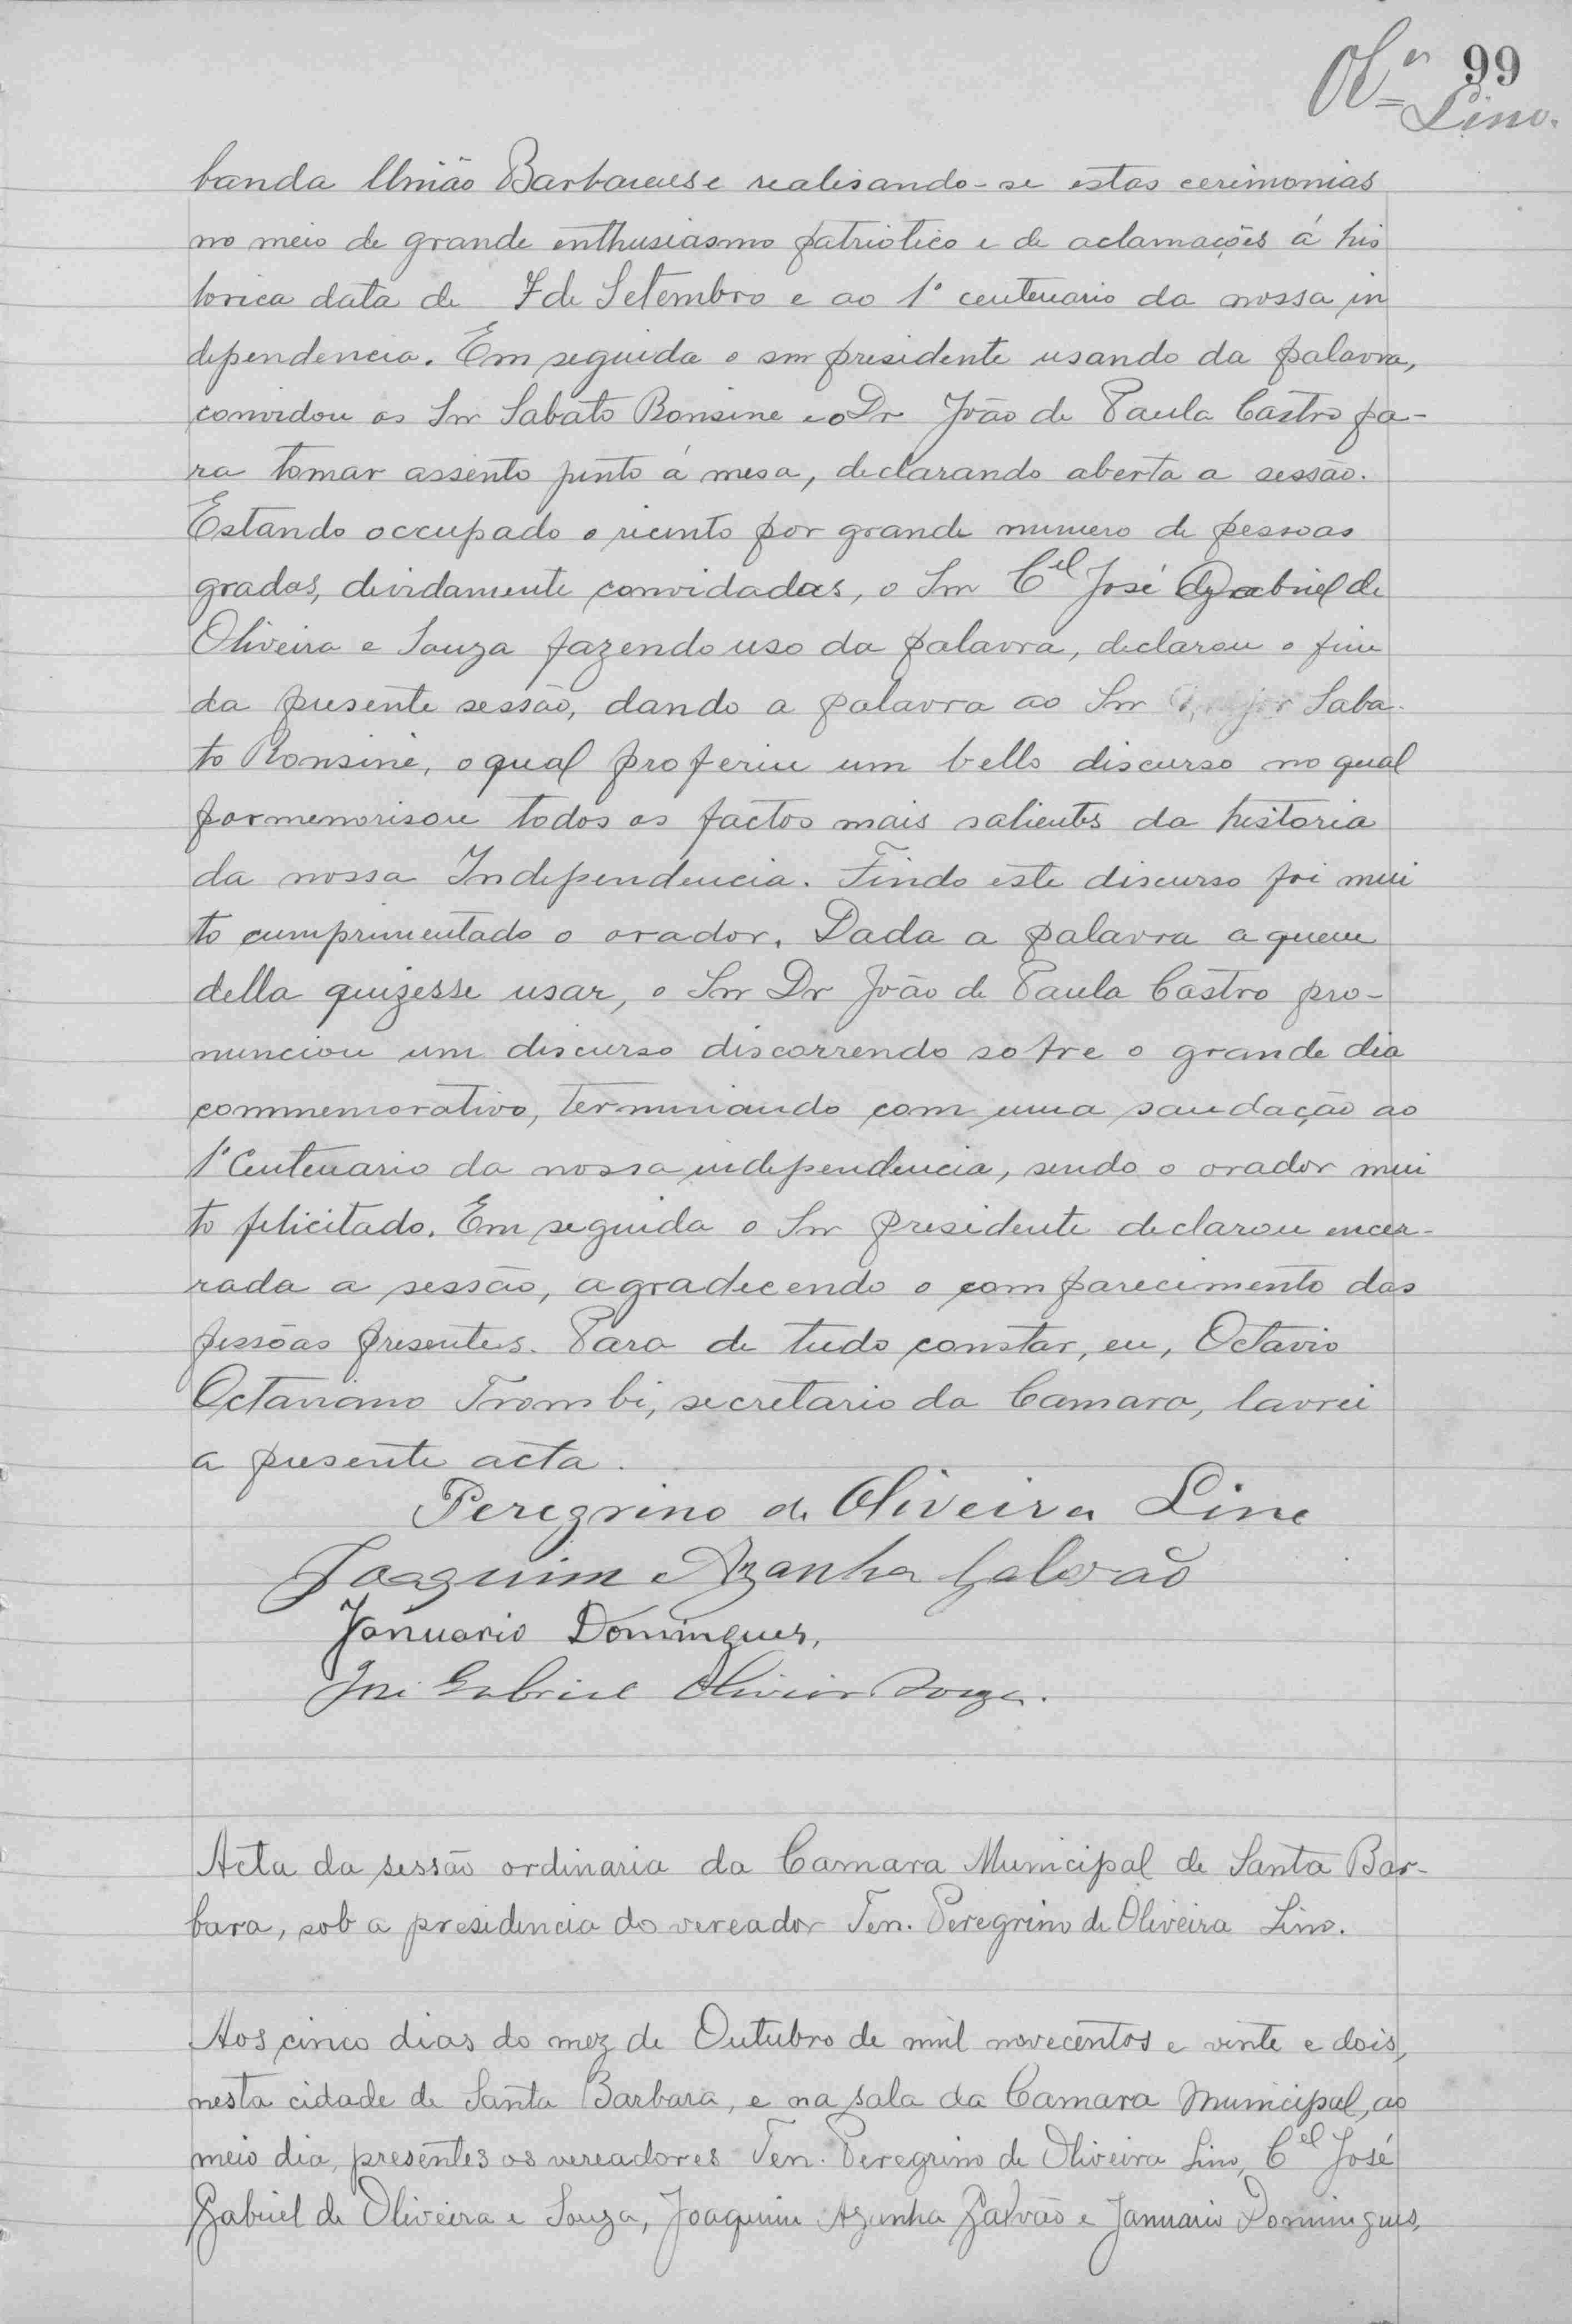 99
Ol.ra
Lino.
banda União Barbarense realisando-se estas cerimonias
no meio de grande enthusiasmo patriotico e de aclamações á his
torica data de 7 de Setembro e ao 1º centenario da nossa in
dependencia. Em seguida o snr presidente usando da palavra,
convidou os Snr Sabato Ronsine e o Dr João de Paula Castro pa-
ra tomar assento junto á mesa, declarando aberta a sessão.
Estando occupado o recinto por grande numero de pessoas
gradas, devidamente convidadas, o Snr Cel José Gabriel de
Oliveira e Souza fazendo uso da palavra, declarou o fim
da presente sessão, dando a palavra ao Snr Saba-
to Ronsine, o qual proferiu um bello discurso no qual
pormenorisou todos os factos mais salientes da historia
da nossa Independencia. Findo este discurso foi mui
to cumprimentado o orador. Dada a palavra a quem
della quizesse usar, o Snr Dr João de Paula Castro pro-
nunciou um discurso discorrendo sobre o grande dia
commemorativo, terminando com uma saudação ao
1º Centenario da nossa independencia, sendo o orador mui
to felicitado. Em seguida o Snr presidente declarou encer-
rada a sessão, agradecendo o comparecimento das
pessôas presentes. Para de tudo constar, eu, Octavio
Octaviano Trombi, secretario da Camara, lavrei
a presente acta.
Peregrino de Oliveira Lino
Joaquim Azanha Galvão
Januario Domingues,
José Gabriel Oliveira Souza.
Acta da sessão ordinaria da Camara Municipal de Santa Bar-
bara, sob a presidencia do vereador Ten. Peregrino de Oliveira Lino.
Aos cinco dias do mez de Outubro de mil novecentos e vinte e dois,
nesta cidade de Santa Barbara, e na sala da Camara Municipal, ao
meio dia, presentes os vereadores Ten. Peregrino de Oliveira Lino, Cel José
Gabriel de Oliveira e Souza, Joaquim Azanha Galvão e Januario Domingues,